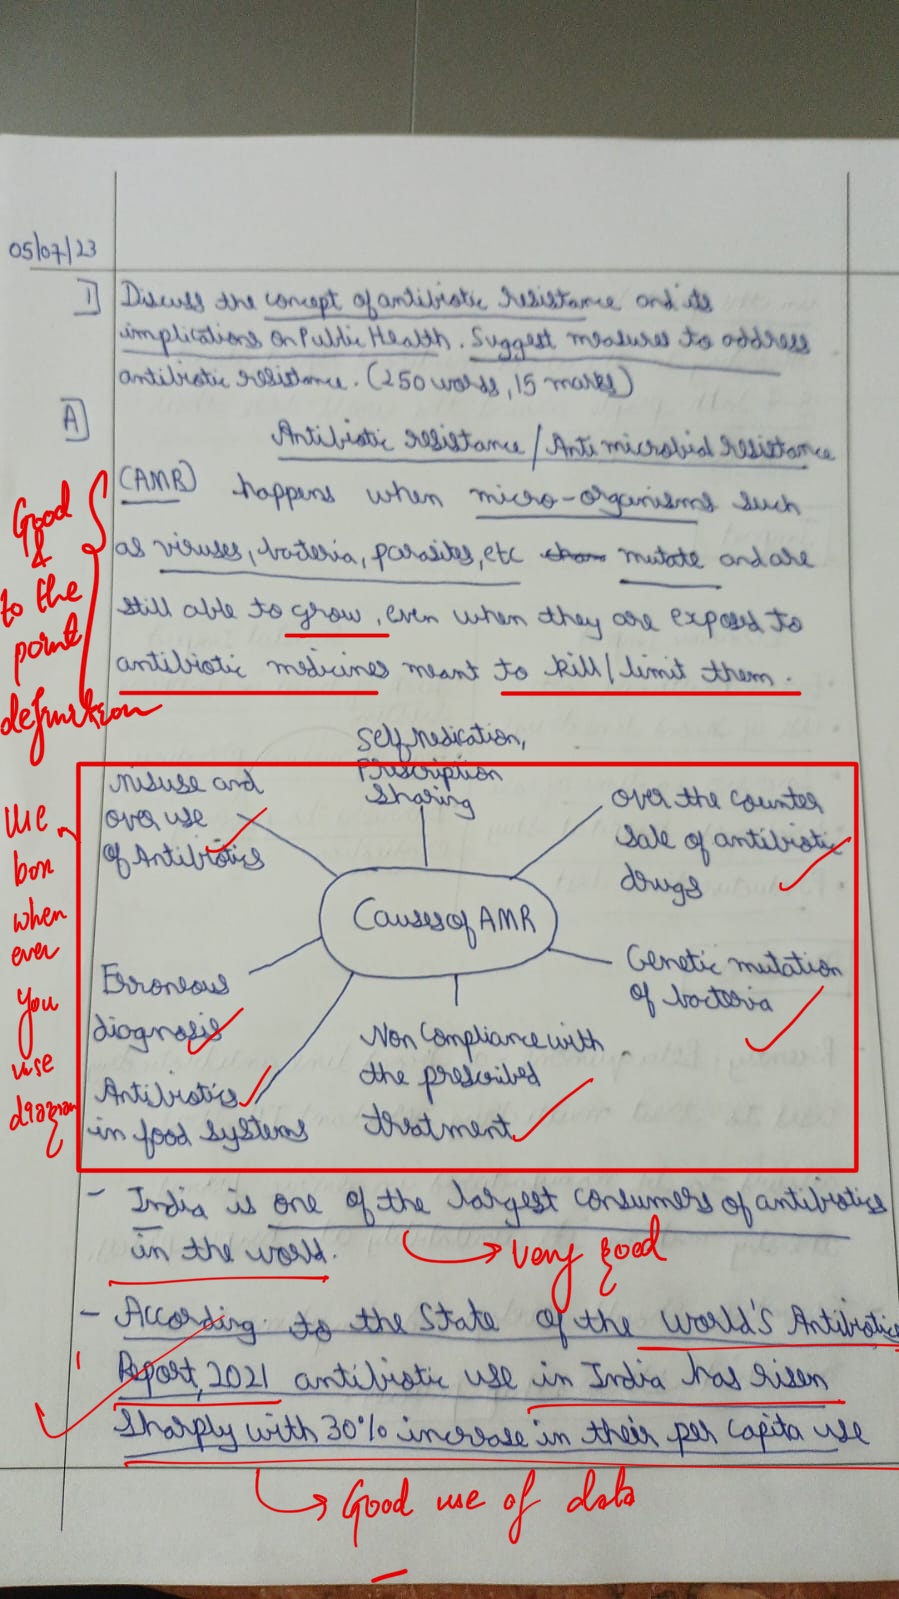 05/07/23
1] Discuss the concept of antibiotic resistance and its
implications on Public Health. Suggest measures to address
antibiotic resistance. (250 words, 15 marks)
A]
Antibiotic resistance / Anti microbial resistance
(AMR) happens when micro-organisms such
as viruses, bacteria, parasites, etc mutate and are
still able to grow, even when they are exposed to
antibiotic medicines meant to kill/limit them.
Good
&
to the
point
definition
Self medication,
Prescription
Sharing
Misuse and
over use
of Antibiotics
over the counter
Sale of antibiotic
drugs
Causes of AMR
Erroneous
diagnosis
Genetic mutation
of bacteria
Antibiotics
in food systems
Non Compliance with
the prescribed
treatment
use
box
when
ever
you
use
diagram
- India is one of the largest consumers of antibiotics
in the world.
very good
- According to the State of the World's Antibiotics
Report, 2021 antibiotic use in India has risen
sharply with 30% increase in their per capita use
Good use of data